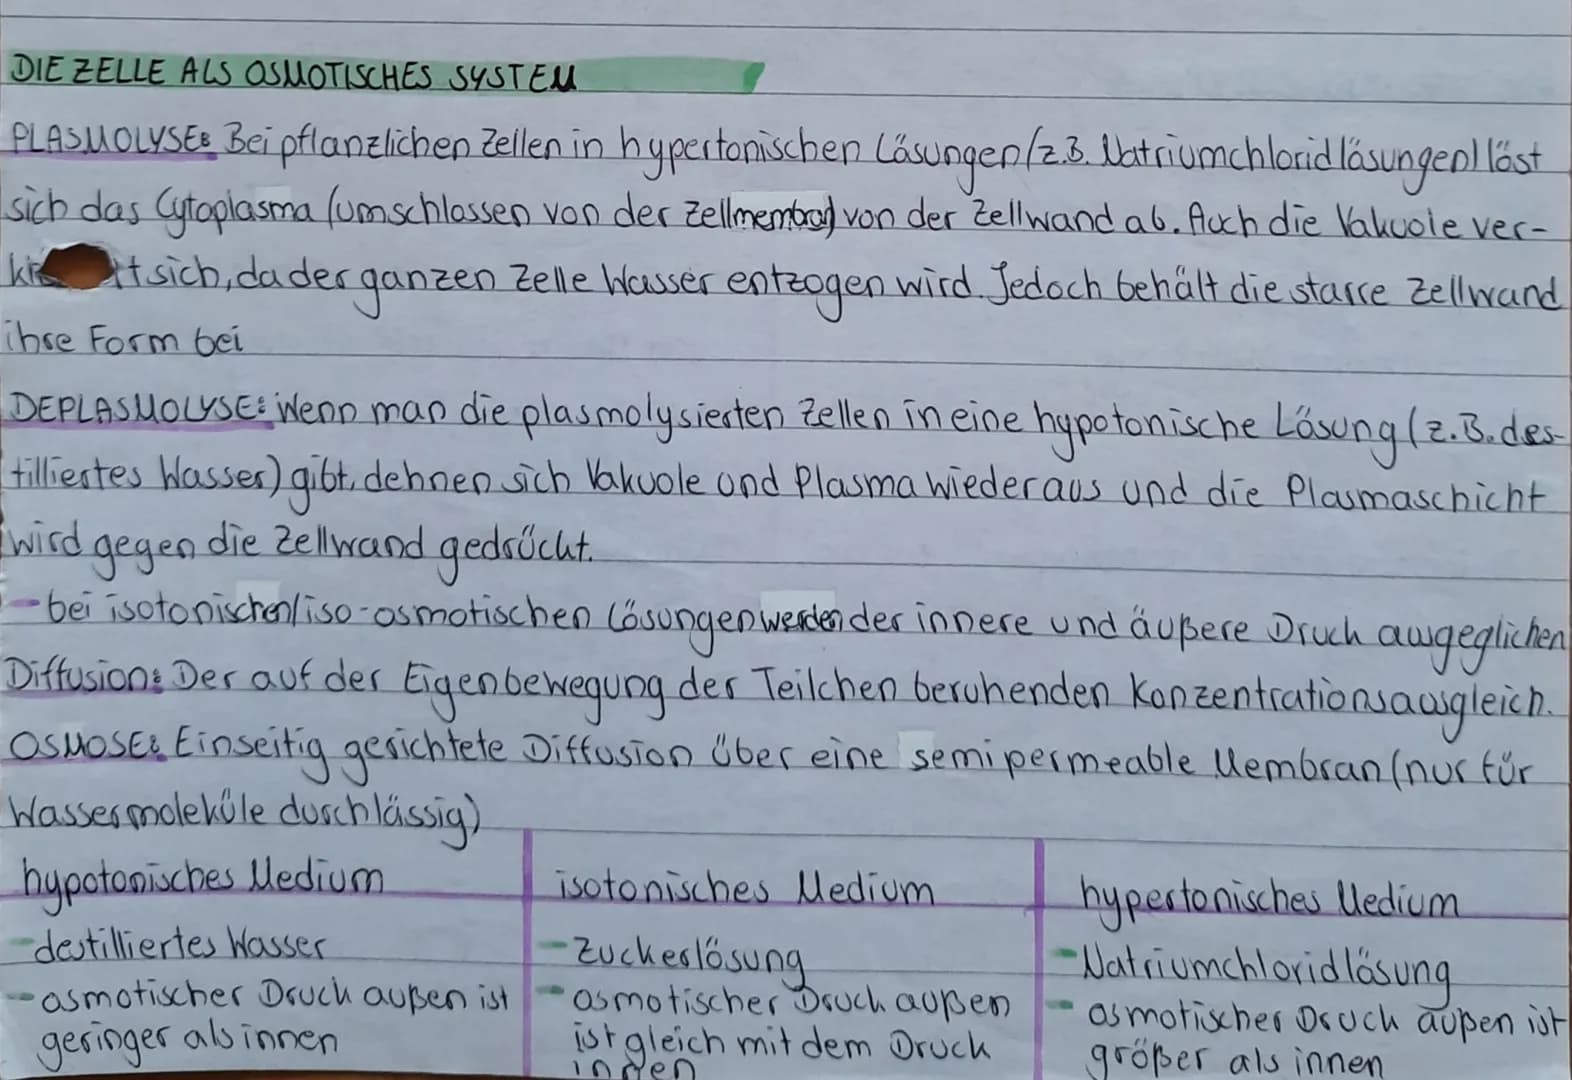 DIE ZELLE ALS OSMOTISCHES SYSTEM
PLASMOLYSE: Bei pflanzlichen Zellen in hypertonischen Lösungen (z.B. Natriumchloridlösungen) löst
sich das Cytoplasma (umschlossen von der Zellmembran) von der Zellwand ab. Auch die Vakuole ver-
sich, da der ganzen Zelle Wasser entzogen wird. Jedoch behält die starre Zellwand
ihre Form bei
DEPLASMOLYSE: Wenn man die plasmolysierten Zellen in eine hypotonische Lösung (z.B. des-
tilliertes Wasser) gibt, dehnen sich Vakuole und Plasma wieder aus und die Plasmaschicht
wird gegen die Zellwand gedrückt.
- bei isotonischen/iso-osmotischen Lösungen werden der innere und äußere Druch ausgeglichen
Diffusion: Der auf der Eigenbewegung der Teilchen beruhenden Konzentrationsausgleich.
OSMOSE: Einseitig gerichtete Diffusion über eine semipermeable Membran (nur für
Wassermoleküle durchlässig)
hypotonisches Medium
- destilliertes Wasser
- osmotischer Druck außen ist
geringer als innen
isotonisches Medium
- Zuckerlösung
- osmotischer Druch außen
ist gleich mit dem Druck
innen
hypertonisches Medium
- Natriumchloridlösung
- osmotischer Druck außen ist
größer als innen